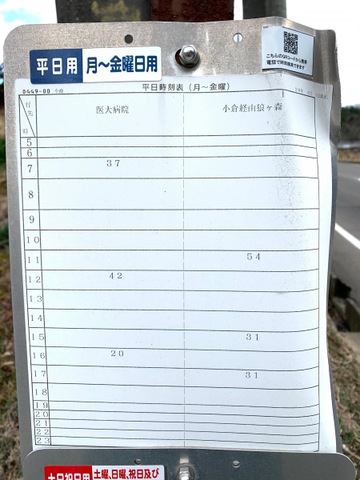 平日用 月～金曜日用
こちらのQRコードから携帯
電話で時刻検索できます
0449-00 小森
平日時刻表（月～金曜）
行先 医大病院 小倉経由狼ヶ森
時
5
6
7 37
8
9
10
11 54
12 42
13
14
15 31
16 20
17 31
18
19
20
21
22
23
土日祝日用 土曜、日曜、祝日及び